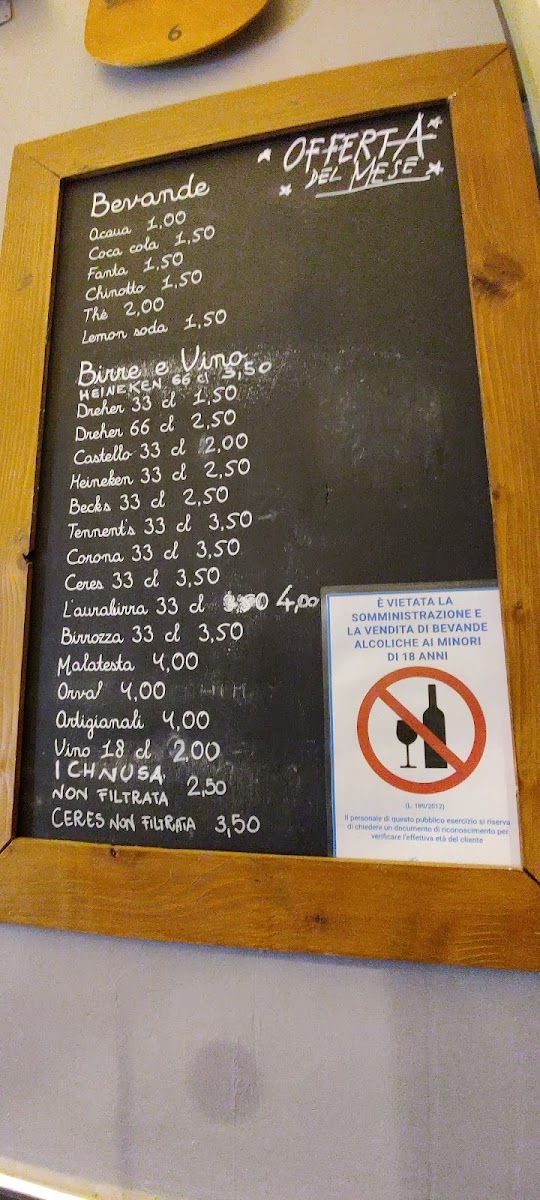 6
OFFERTA
DEL MESE
Bevande
Acqua 1,00
Coca cola 1,50
Fanta 1,50
Chinotto 1,50
Thé 2,00
Lemon soda 1,50
Birre e Vino
HEINEKEN 66 cl 3,50
Dreher 33 cl 1,50
Dreher 66 cl 2,50
Castello 33 cl 2,00
Heineken 33 cl 2,50
Becks 33 cl 2,50
Tennent's 33 cl 3,50
Corona 33 cl 3,50
Ceres 33 cl 3,50
L'aurabirra 33 cl 4,00
Birrozza 33 cl 3,50
Malatesta 4,00
Orval 4,00
Artigianali 4,00
Vino 18 cl 2,00
ICHNUSA
NON FILTRATA 2,50
CERES NON FILTRATA 3,50
È VIETATA LA
SOMMINISTRAZIONE E
LA VENDITA DI BEVANDE
ALCOLICHE AI MINORI
DI 18 ANNI
(L. 189/2012)
Il personale di questo pubblico esercizio si riserva
di chiedere un documento di riconoscimento per
verificare l'effettiva età del cliente